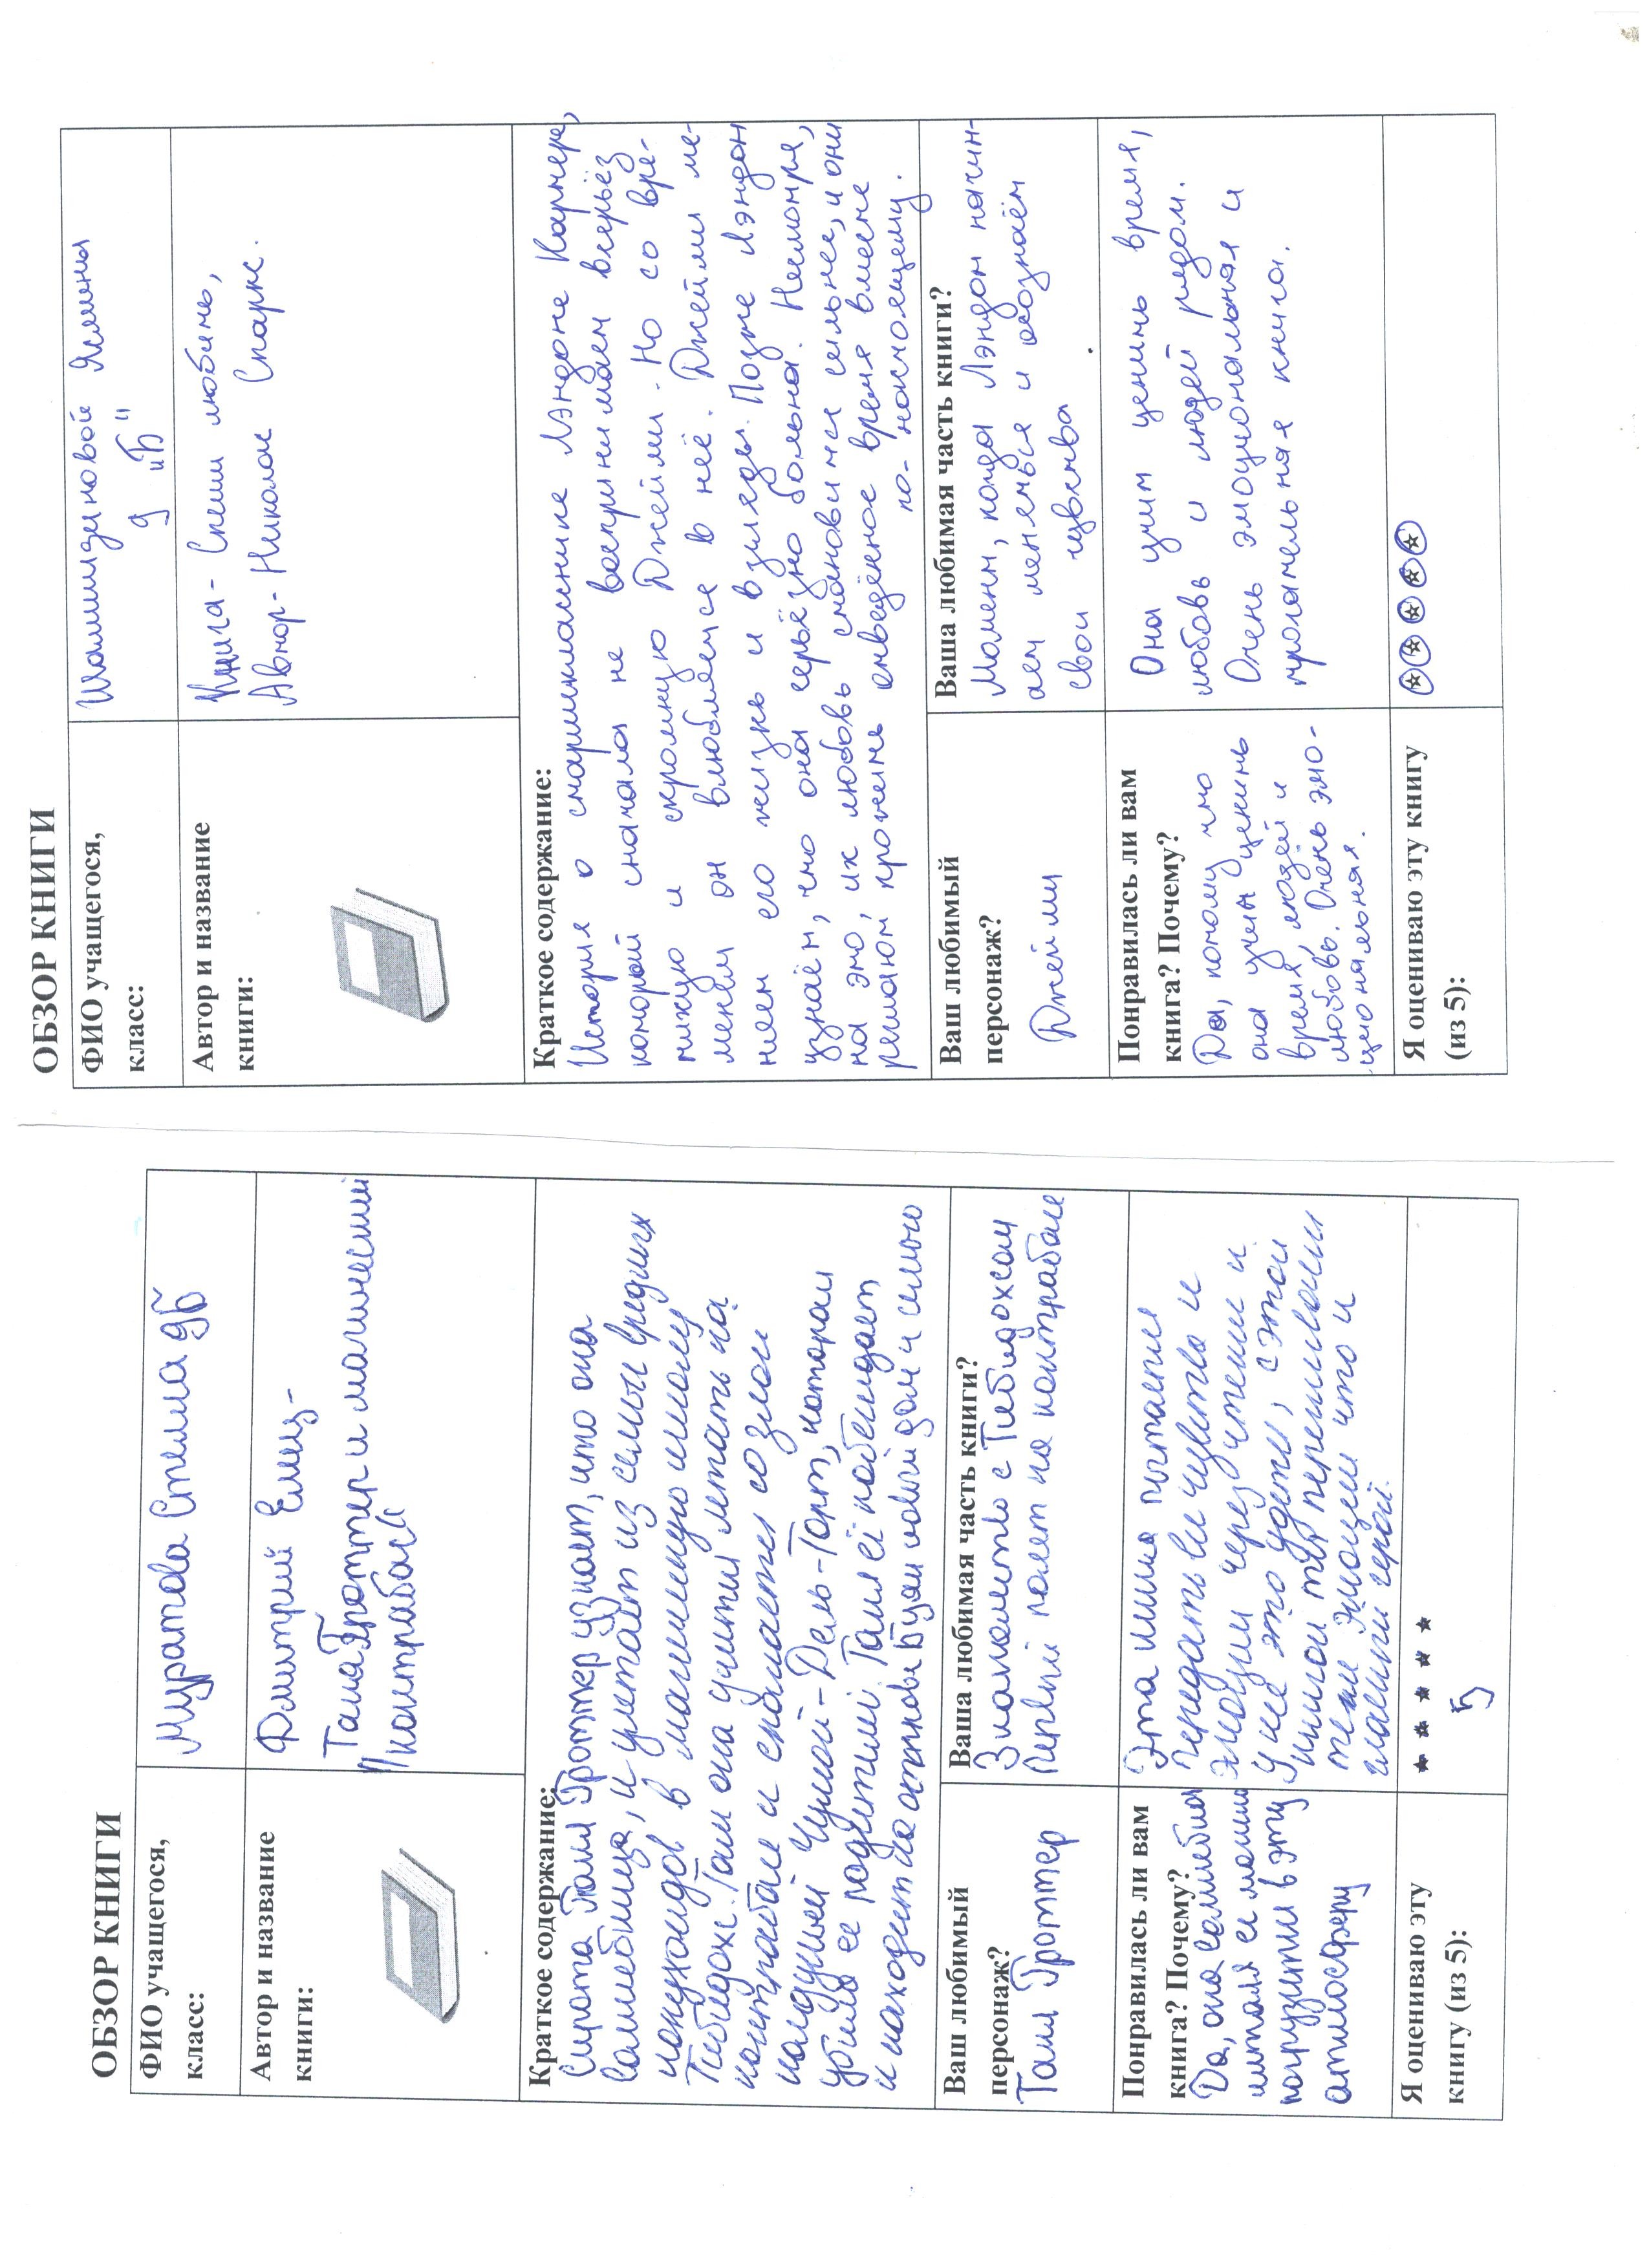 ОБЗОР КНИГИ
ФИО учащегося,
класс:
Муратова Стелла 9Б
Автор и название
книги:
Дмитрий Емец-
Таня Гроттер и магический
контрабас
Краткое содержание:
Сирота Таня Гроттер узнает, что она
волшебница, и улетает из семьи вредных
лопухоидов в магическую школу
Тибидохс. Там она учится летать на
контрабасе и сражается со злой
колдуньей Чумой-Дель-Торт, которая
убила её родителей. Таня её побеждает
и находит на острове Буян новый дом и школу
Ваш любимый
персонаж?
Таня Гроттер
Ваша любимая часть книги?
Знакомство с Тибидохсом
Первый полет на контрабасе
Понравилась ли вам
книга? Почему?
Да, она волшебная
читая её можно
погрузится в эту
атмосферу
Эта книга пытается
передать все чувства и
эмоции через чтение и
у неё это удаётся, с этой
книгой ты переживаешь
те же эмоции что и
главный герой.
Я оцениваю эту
книгу (из 5):
★ ★ ★ ★ ★
5
ОБЗОР КНИГИ
ФИО учащегося,
класс:
Шамшидиновой Ясмина
9 "Б"
Автор и название
книги:
Книга- Спеши любить,
Автор- Николас Спаркс.
Краткое содержание:
История о старшикласснике Лэндоне Картере,
который сначала не воспринимает всерьёз
тихую и скромную Джейми. Но со вре-
менем он влюбляется в неё. Джейми ме-
няет его жизнь и взгляды. Позже Лэндон
узнаёт, что она серьёзно больна. Несмотря,
на это, их любовь становится сильнее, и они
решают прожить отведённое время вместе
по-настоящему.
Ваш любимый
персонаж?
Джейми
Ваша любимая часть книги?
Момент, когда Лэндон начин-
ает меняться и осознаёт
свои чувства
Понравилась ли вам
книга? Почему?
Да, потому что
она учит ценить
время, людей и
любовь. Очень эмо-
циональная.
Она учит ценить время,
любовь и людей рядом.
Очень эмоциональная и
трогательная книга.
Я оцениваю эту книгу
(из 5):
★ ★ ★ ★ ★